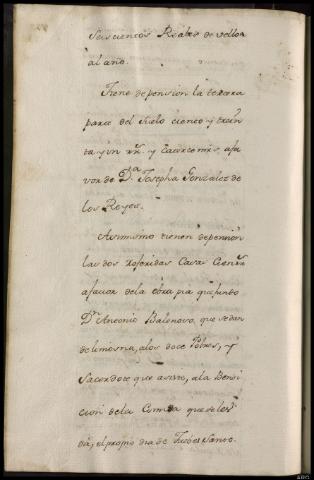 Seiscientos Reales de vellon
al año.
Tiene de pension la tercera
parte del suelo ciento y trein
ta y un rr.s y catorce mrs, a fa
vor de D.a Josepha Gonzalez de
los Reyes.
Asimismo tienen de pension
las dos referidas Casas Cien rr.s
a favor de la obra pia que fundo
D.n Antonio Balenovo, que se dan
de limosna, a los doce Pobres, y
Sacerdote que asiste, a la Bendi
cion de la Comida que se les
da, el propio dia de Jueves Santo.